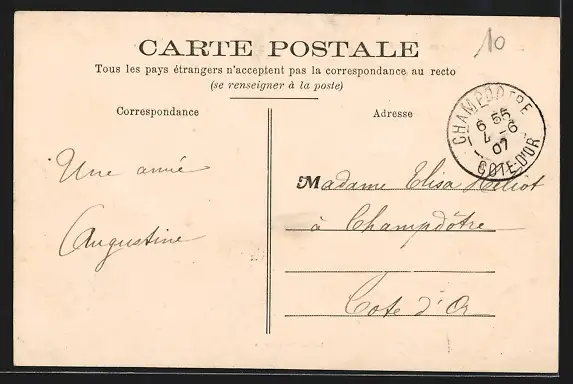 10
CARTE POSTALE
Tous les pays étrangers n'acceptent pas la correspondance au recto
(se renseigner à la poste)
Correspondance
Adresse
CHAMPDOTRE
6 55
4 - 6
07
COTE-D'OR
Une amie
Augustine
Madame Elisa Héliot
à Champdôtre
Cote d'Or